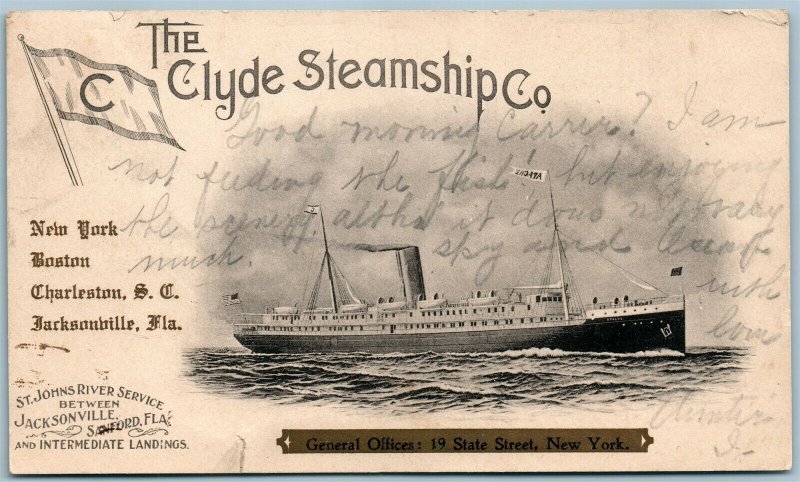 The
Clyde Steamship Co
C
Good morning Carrie? I am
not feeding the fish but enjoying
the scenery altho it does not vary
much. spy and
with
love
New York
Boston
Charleston, S. C.
Jacksonville, Fla.
APACHE
St. Johns River Service
between
Jacksonville,
Sanford, Fla.
and Intermediate Landings.
General Offices: 19 State Street, New York.